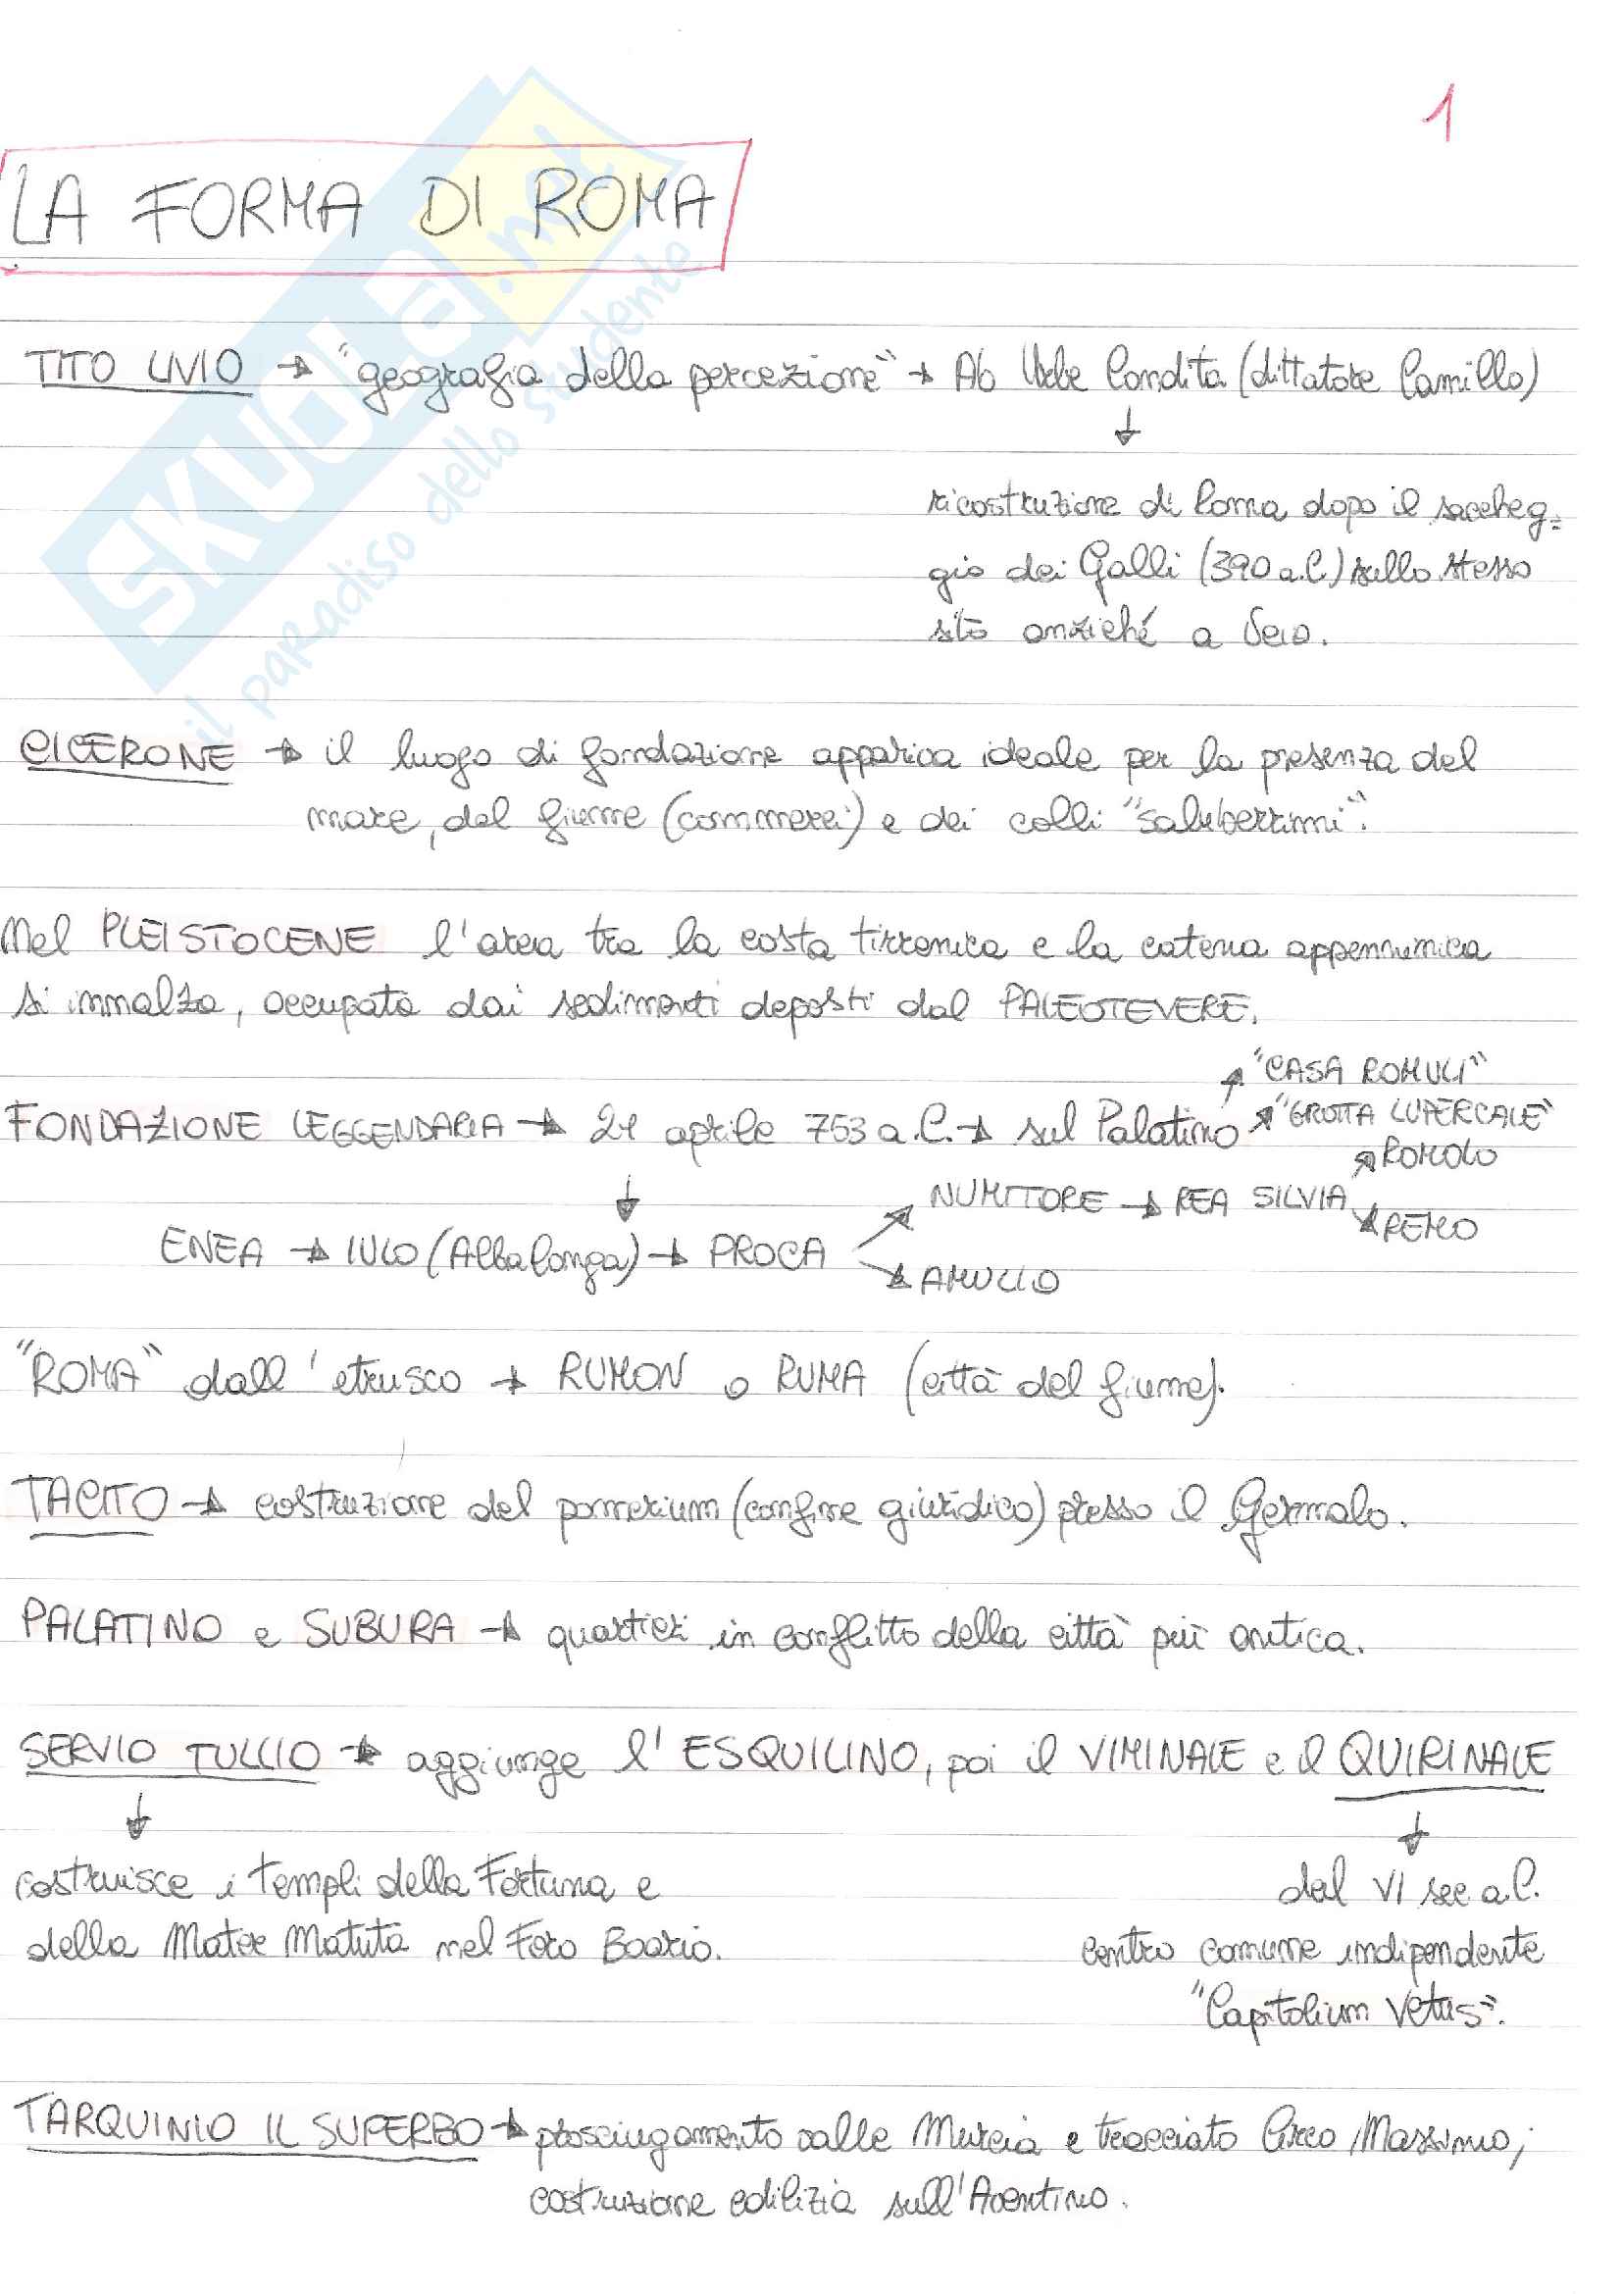 1
LA FORMA DI ROMA
SKUOLA.net
il paradiso dello studente
TITO LIVIO → "geografia della percezione" → Ab Urbe Condita (dittatore Camillo)
↓
ricostruzione di Roma dopo il saccheg=
gio dei Galli (390 a.C.) sullo stesso
sito anziché a Veio.
CICERONE → il luogo di fondazione appariva ideale per la presenza del
mare, del fiume (commerci) e dei colli "saluberrimi".
Nel PLEISTOCENE l'area tra la costa tirrenica e la catena appenninica
si innalza, occupata dai sedimenti deposti dal PALEOTEVERE.
↗ "CASA ROMULI"
FONDAZIONE LEGGENDARIA → 21 aprile 753 a.C. → sul Palatino ↗ "GROTTA LUPERCALE"
↗ ROMOLO
↓ NUMITORE → REA SILVIA ↘ REMO
ENEA → IULO (Alba Longa) → PROCA ↗
↘ AMULIO
"ROMA" dall'etrusco → RUMON o RUMA (città del fiume).
TACITO → costruzione del pomerium (confine giuridico) presso il Germalo.
PALATINO e SUBURA → quartieri in conflitto della città più antica.
SERVIO TULLIO → aggiunge l'ESQUILINO, poi il VIMINALE e il QUIRINALE
↓ ↓
costruisce i templi della Fortuna e dal VI sec. a.C.
della Mater Matuta nel Foro Boario. centro comune indipendente
"Capitolium Vetus".
TARQUINIO IL SUPERBO → prosciugamento valle Murcia e tracciato Circo Massimo;
costruzione edilizia sull'Aventino.